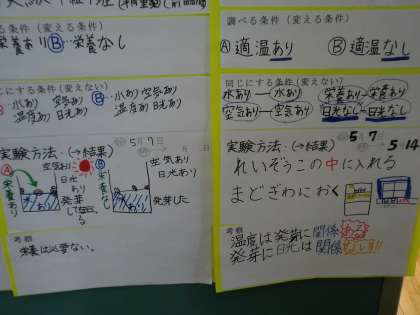 る条件（変える条件）
栄養あり Ⓑ…栄養なし
にする条件（変えない）
水あり 空気あり Ⓑ…水あり 空気あり
温度あり 日光あり 温度あり 日光あり
実験方法・（→結果） 5月7日
Ⓐ 空気あり Ⓑ 空気あり
日光あり 日光あり
栄養あり 栄養なし
発芽した
考察
栄養は必要ない。
調べる条件（変える条件）
Ⓐ 適温あり Ⓑ 適温なし
同じにする条件（変えない）
水あり 水あり 栄養あり 栄養あり
空気あり 空気あり 日光なし 日光なし
実験方法・（→結果） 5月7日 5 14
れいぞうこの中に入れる
まどぎわにおく
考察
温度は発芽に関係ある
発芽に日光は関係なし!!